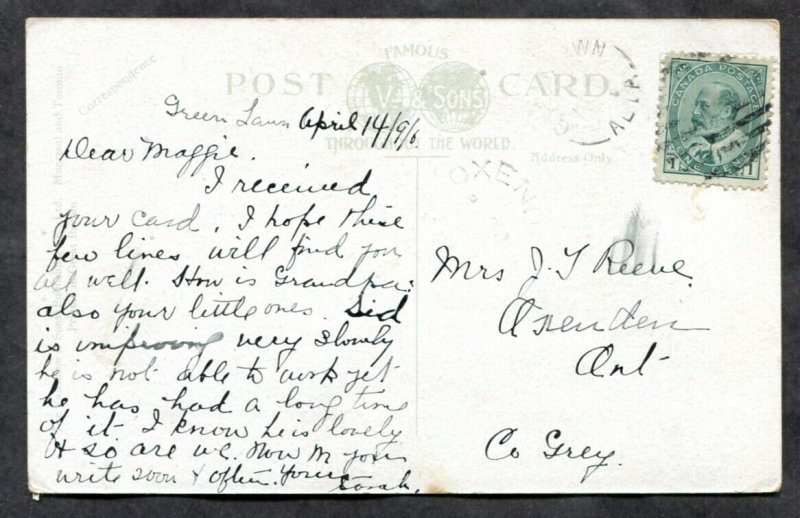 FAMOUS
POST CARD.
V. & SONS
THROUGHOUT THE WORLD.
Correspondence
Address Only
CANADA POSTAGE
ONE CENT
1 1
WN
ALTA
OXEN
Green Lawn April 14/9/
Dear Maggie.
I received
your card, I hope these
few lines will find you
all well. How is Grandpa:
also your little ones. Sid
is improving very slowly
he is not able to work yet
he has had a long time
of it I know he is lonely
& so are we. Now M your
write soon & often. Yours
Sarah.
Mrs J. T Reeve.
Oxenden
Ont
Co Grey.